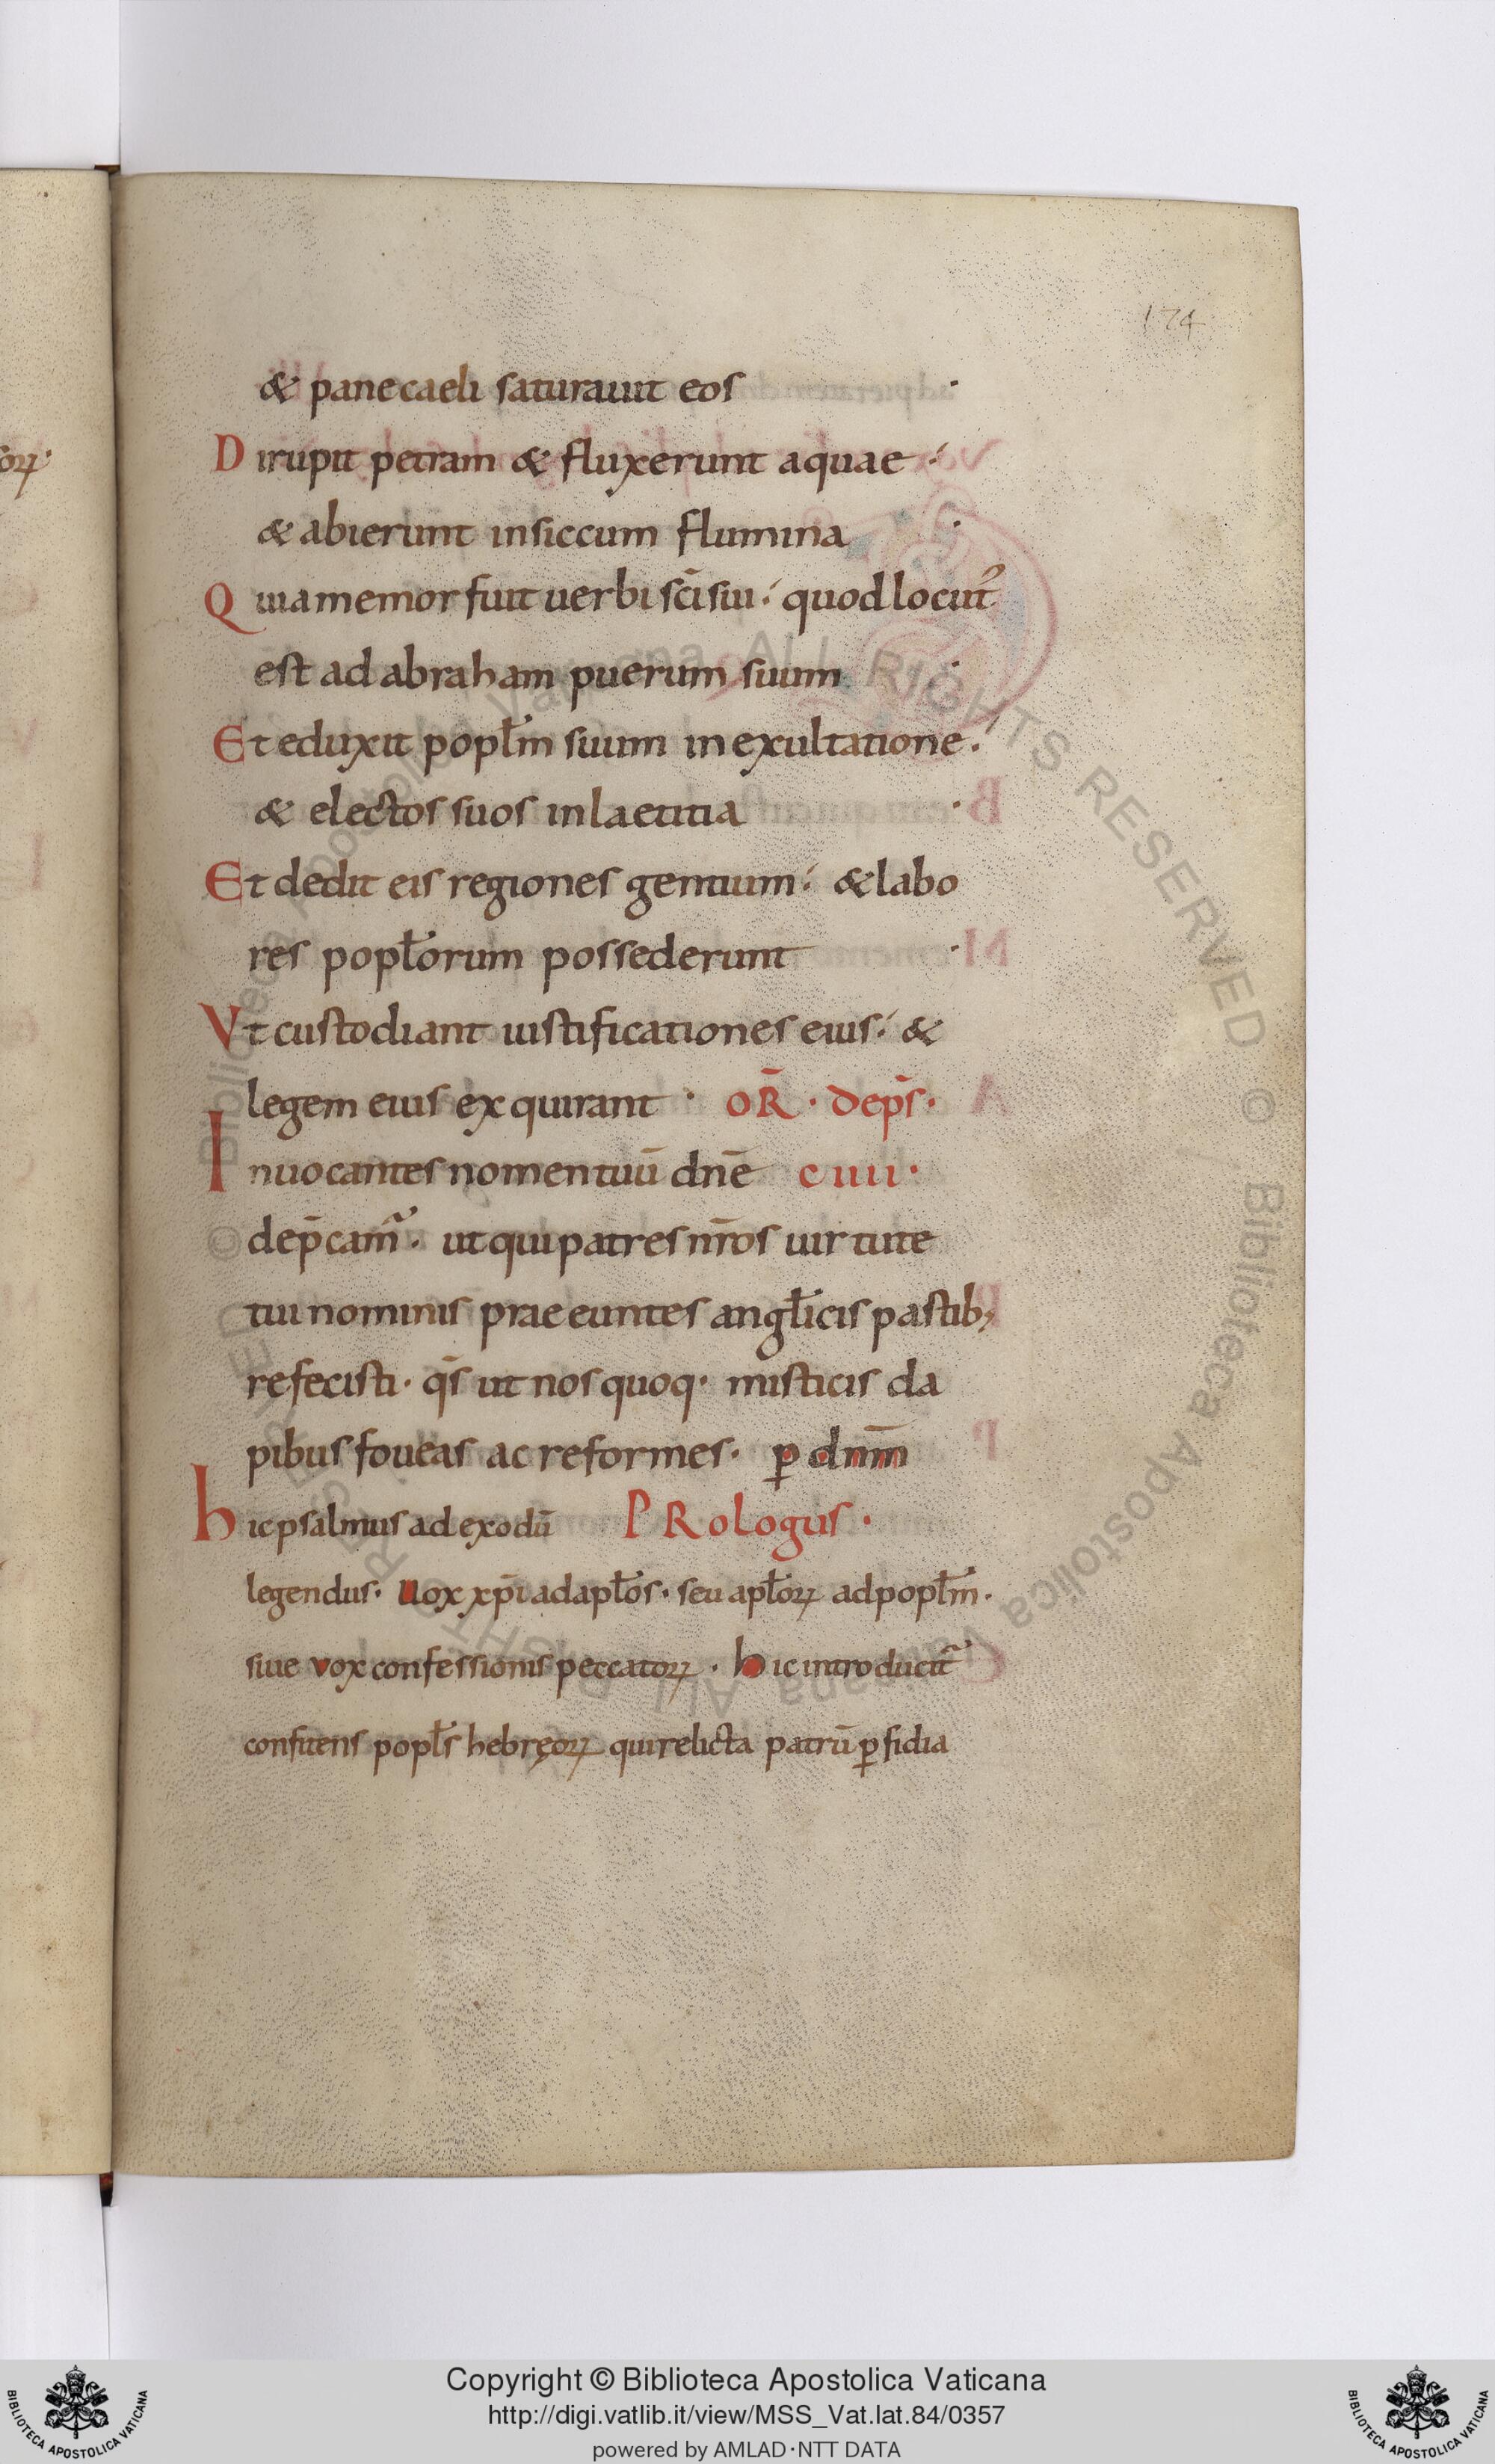 174
orꝝ·
& pane caeli saturauit eos ·
Dirupit petram & fluxerunt aquae ·
& abierunt in siccum flumina ·
Quia memor fuit uerbi sc̄i sui · quod locut᾿
est ad abraham puerum suum ·
Et eduxit popl̄m suum in exultatione ·
& electos suos in laetitia ·
Et dedit eis regiones gentium · & labo
res popl̄orum possederunt ·
Vt custodiant iustificationes eius · &
legem eius exquirant · OR̄ · dep̄s ·
Inuocantes nomen tuū dn̄e ciiii ·
dep̄cam̄ · ut qui patres nr̄os uirtute
tui nominis praeeuntes angl̄icis pastib;
refecisti · q̄s ut nos quoq· misticis da
pibus foueas ac reformes · ꝑ dnm̄
hic psalmus ad exodū PRologus ·
legendus · Uox xp̄i ad apl̄os · seu apl̄orꝝ ad popl̄m ·
siue vox confessionis peccatorꝝ · hic introducit᷑
confitens popl̄s hebręorꝝ qui relicta patrū ꝑfidia
© Biblioteca Apostolica Vaticana ALL RIGHTS RESERVED © Biblioteca Apostolica Vaticana ALL RIGHTS RESERVED
Copyright © Biblioteca Apostolica Vaticana
http://digi.vatlib.it/view/MSS_Vat.lat.84/0357
powered by AMLAD·NTT DATA
BIBLIOTECA APOSTOLICA VATICANA
BIBLIOTECA APOSTOLICA VATICANA